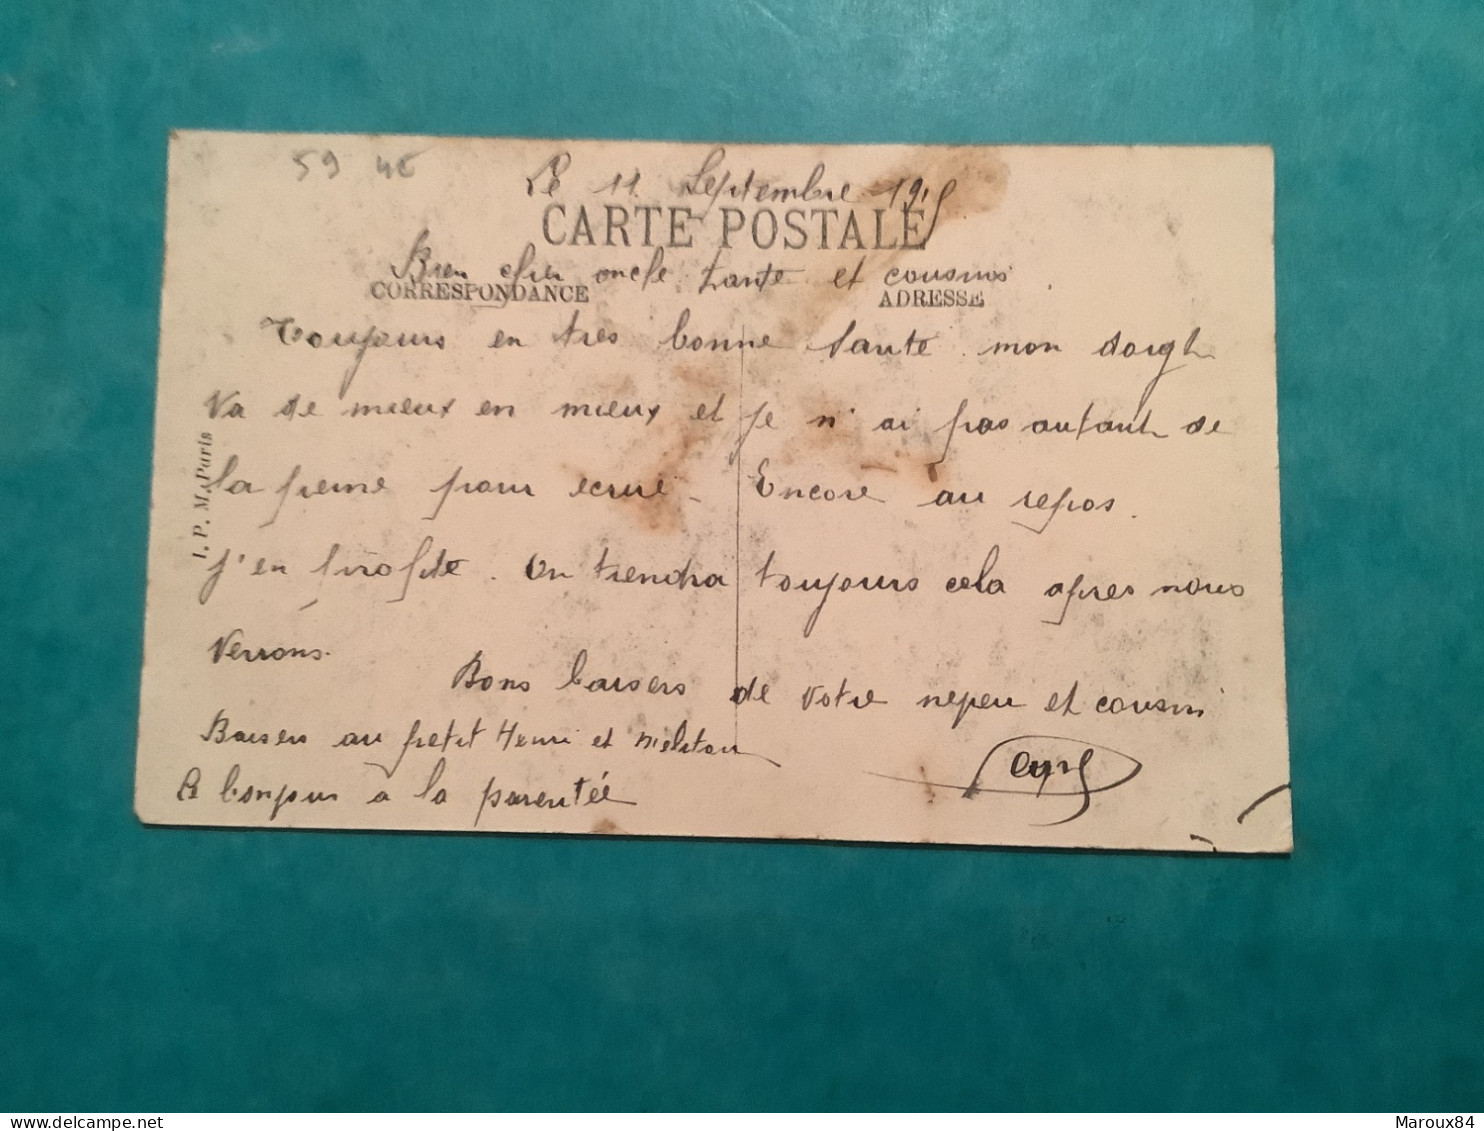 59 4€
Le 11 Septembre 1915
CARTE POSTALE
Bien cher oncle tante et cousins
CORRESPONDANCE ADRESSE
Toujours en tres bonne sante. mon doigt
va de mieux en mieux et je n'ai pas autant de
la peine pour ecrire. Encore au repos.
J'en profite. On tiendra toujours cela apres nous
verrons.
Bons baisers de votre neveu et cousin
Baisers au petit Henri et
A bonjour a la parentée
I. P. M. Paris
Maroux84